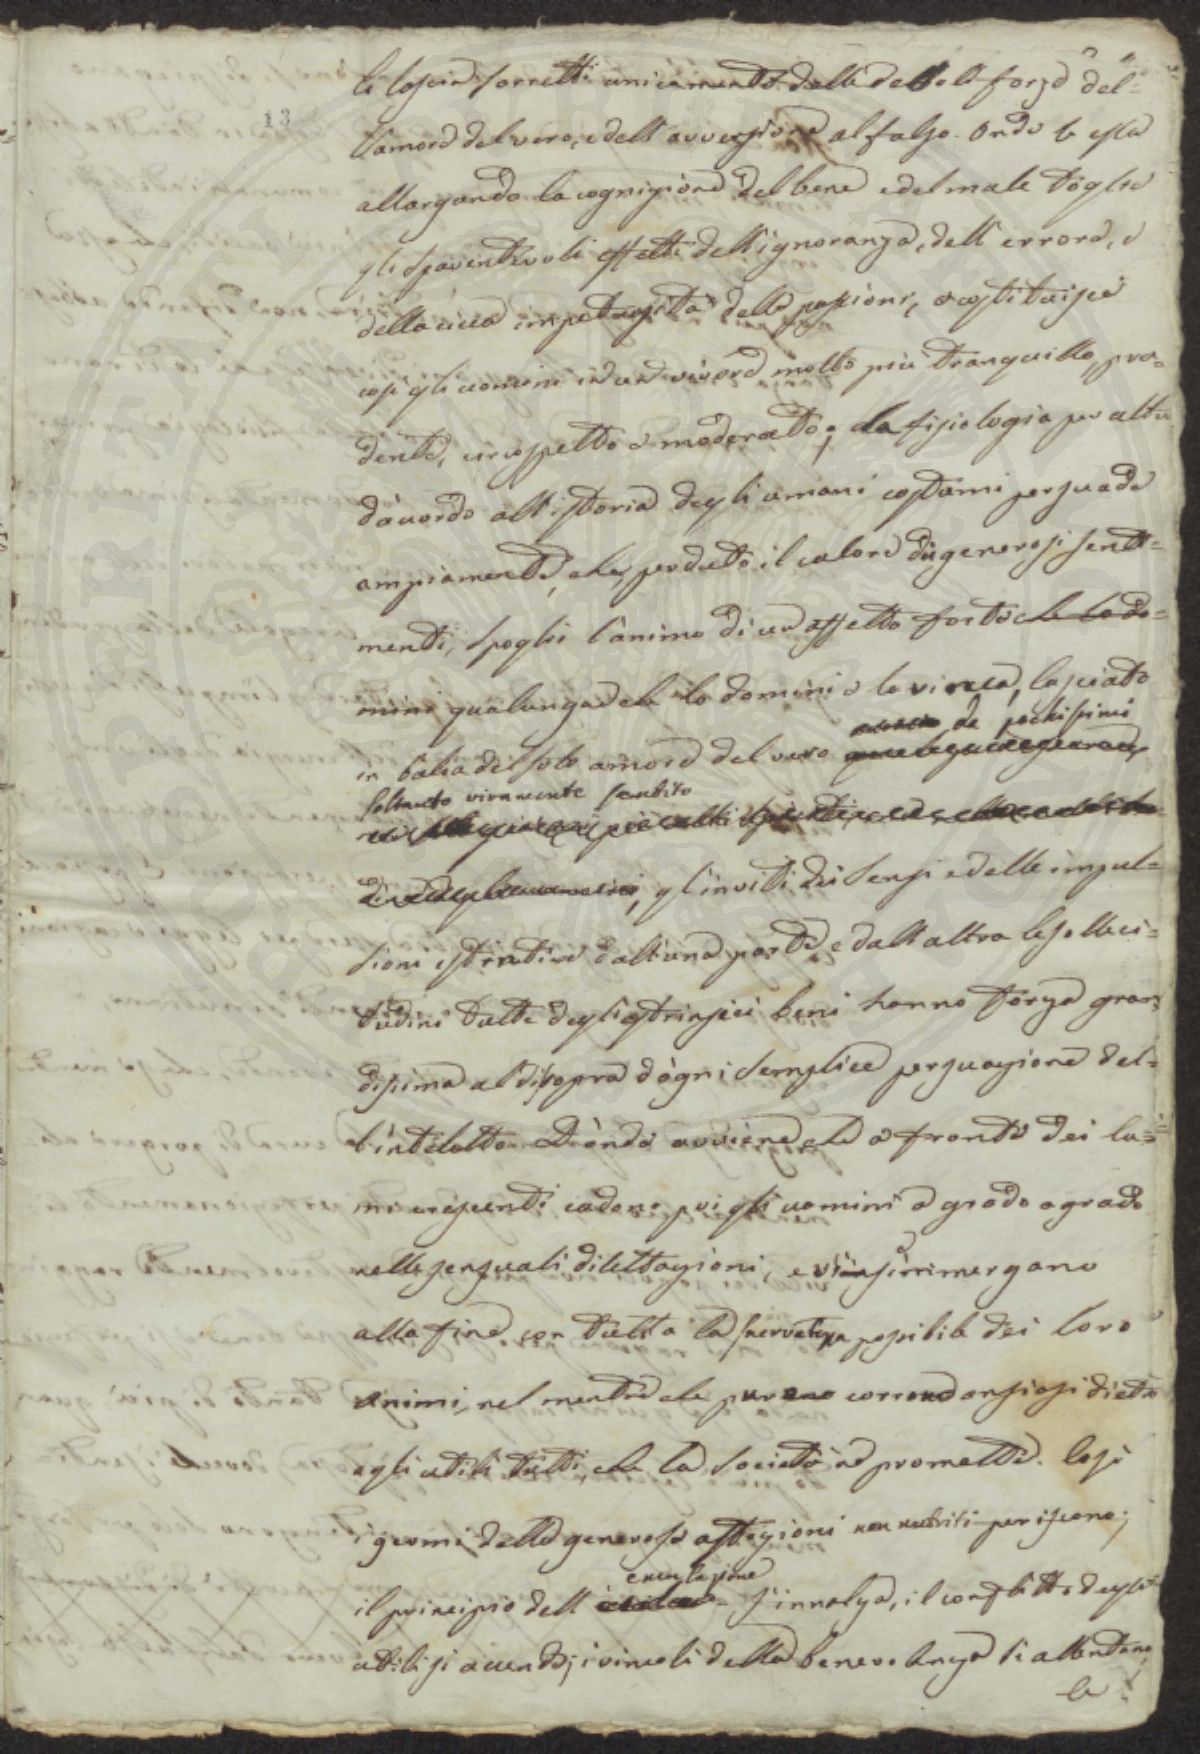 li lascia sorretti unicamente dalle deboli forze del-
l'amore del vero, e dell'avversione al falso. Onde se essa
13
allargando la cognizione del bene e del male toglie
gli spaventevoli effetti dell'ignoranza, dell'errore, e
della cieca impetuosità delle passioni, e costituisce
così gli uomini in un vivere molto più tranquillo, pru-
dente, circospetto e moderato; la fisiologia per altro
d'accordo all'istoria degli umani costumi persuade
ampiamente, che perduto il calore di generosi senti-
menti, spoglio l'animo di un affetto forte che lo do-
mini qualunque che lo domini e lo vinca, lasciato
da pochissimi
in balia del solo amore del vero
soltanto vivamente sentito
gl'inviti dei sensi e delle impul-
sioni istintive dall'una parte, e dall'altra le solleci-
tudini tutte degli estrinseci beni hanno forza gran-
dissima al disopra d'ogni semplice persuasione del-
l'intelletto. D'onde avviene che a fronte dei lu-
mi crescenti cadono poi gli uomini a grado a grado
nelle sensuali dilettazioni, e vi s'immergano
alla fine con tutta la possibile dei loro
animi, nel mentre che pure corrono ansiosi dietro
agli utili tutti, che la società ne promette. Così
i germi delle generose affezioni non nutriti periscono;
emulazione
il principio dell' s'innalza, il conflitto degli
utili si accende, i vincoli della benevolenza si allentano,
la